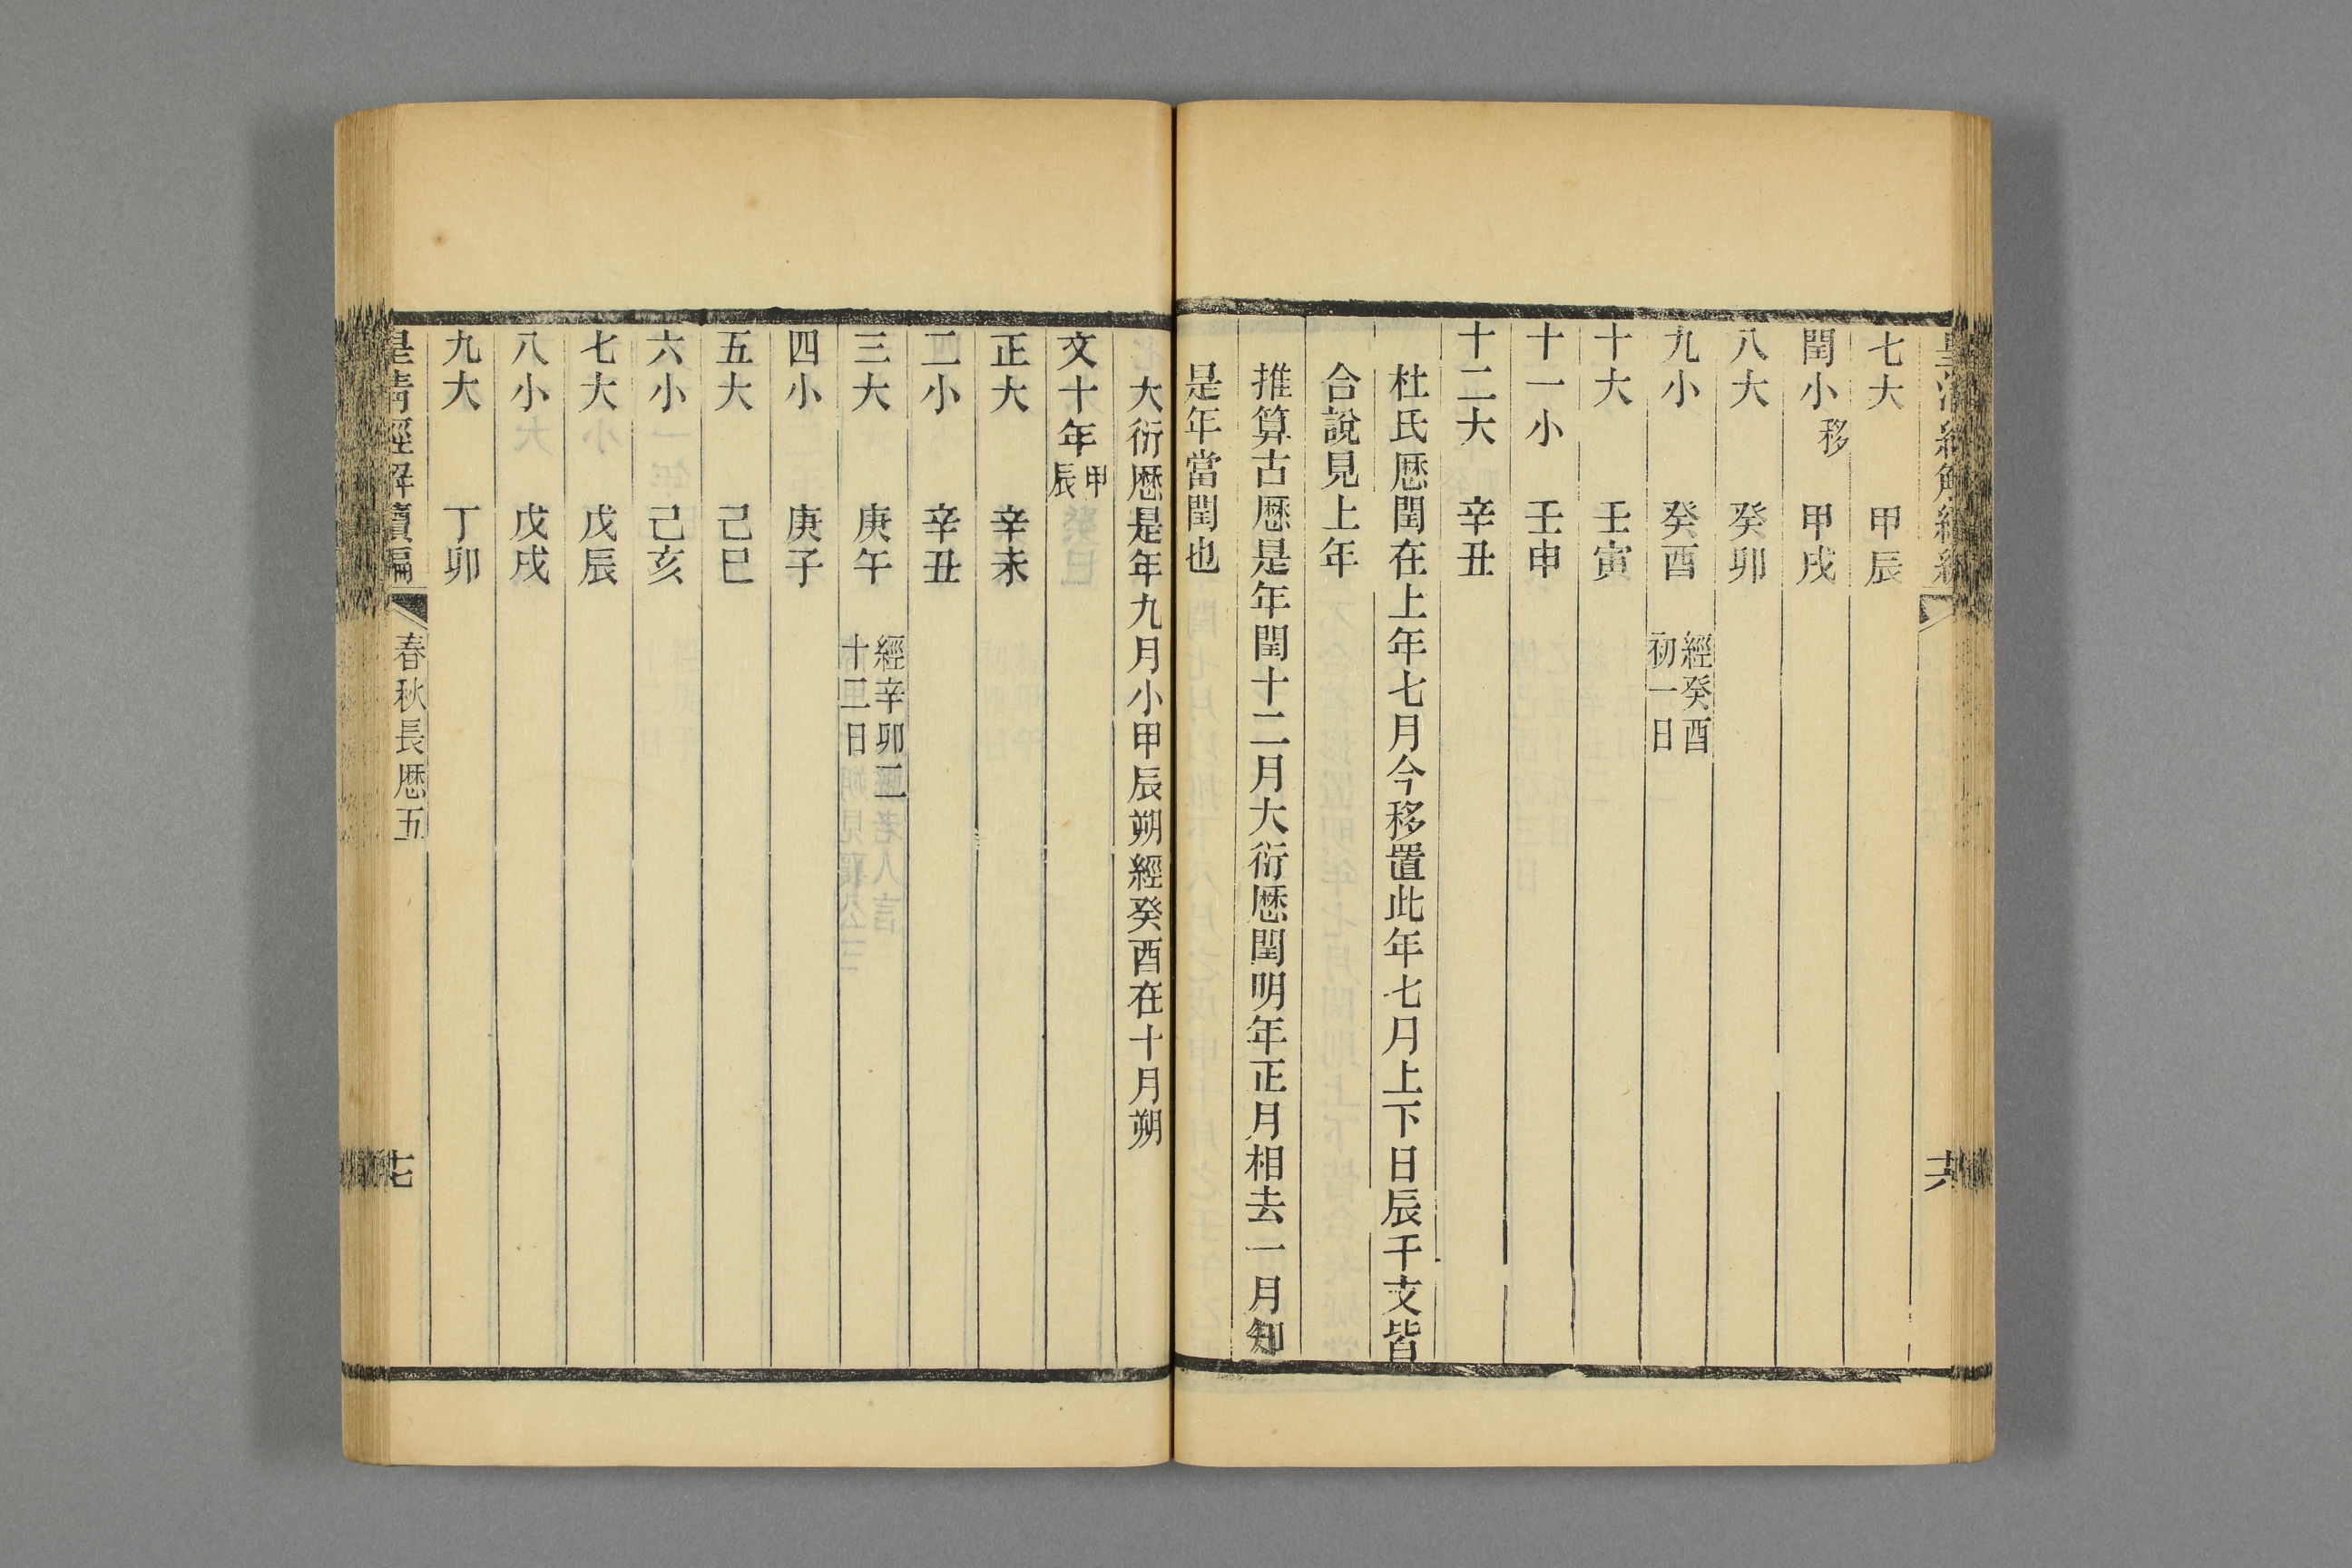 七大　甲辰
閏小移　甲戌
八大　癸卯
九小　癸酉　經癸酉
初一日
十大　壬寅
十一小　壬申
十二大　辛丑
杜氏厯閏在上年七月今移置此年七月上下日辰干支皆
合說見上年
推算古厯是年閏十二月大衍厯閏明年正月相去一月知
是年當閏也
大衍厯是年九月小甲辰朔經癸酉在十月朔
文十年甲
辰
正大　辛未
二小　辛丑
三大　庚午　經辛卯二
十二日
四小　庚子
五大　己巳
六小　己亥
七大　戊辰
八小　戊戌
九大　丁卯
皇清經解續編　春秋長厯五　七